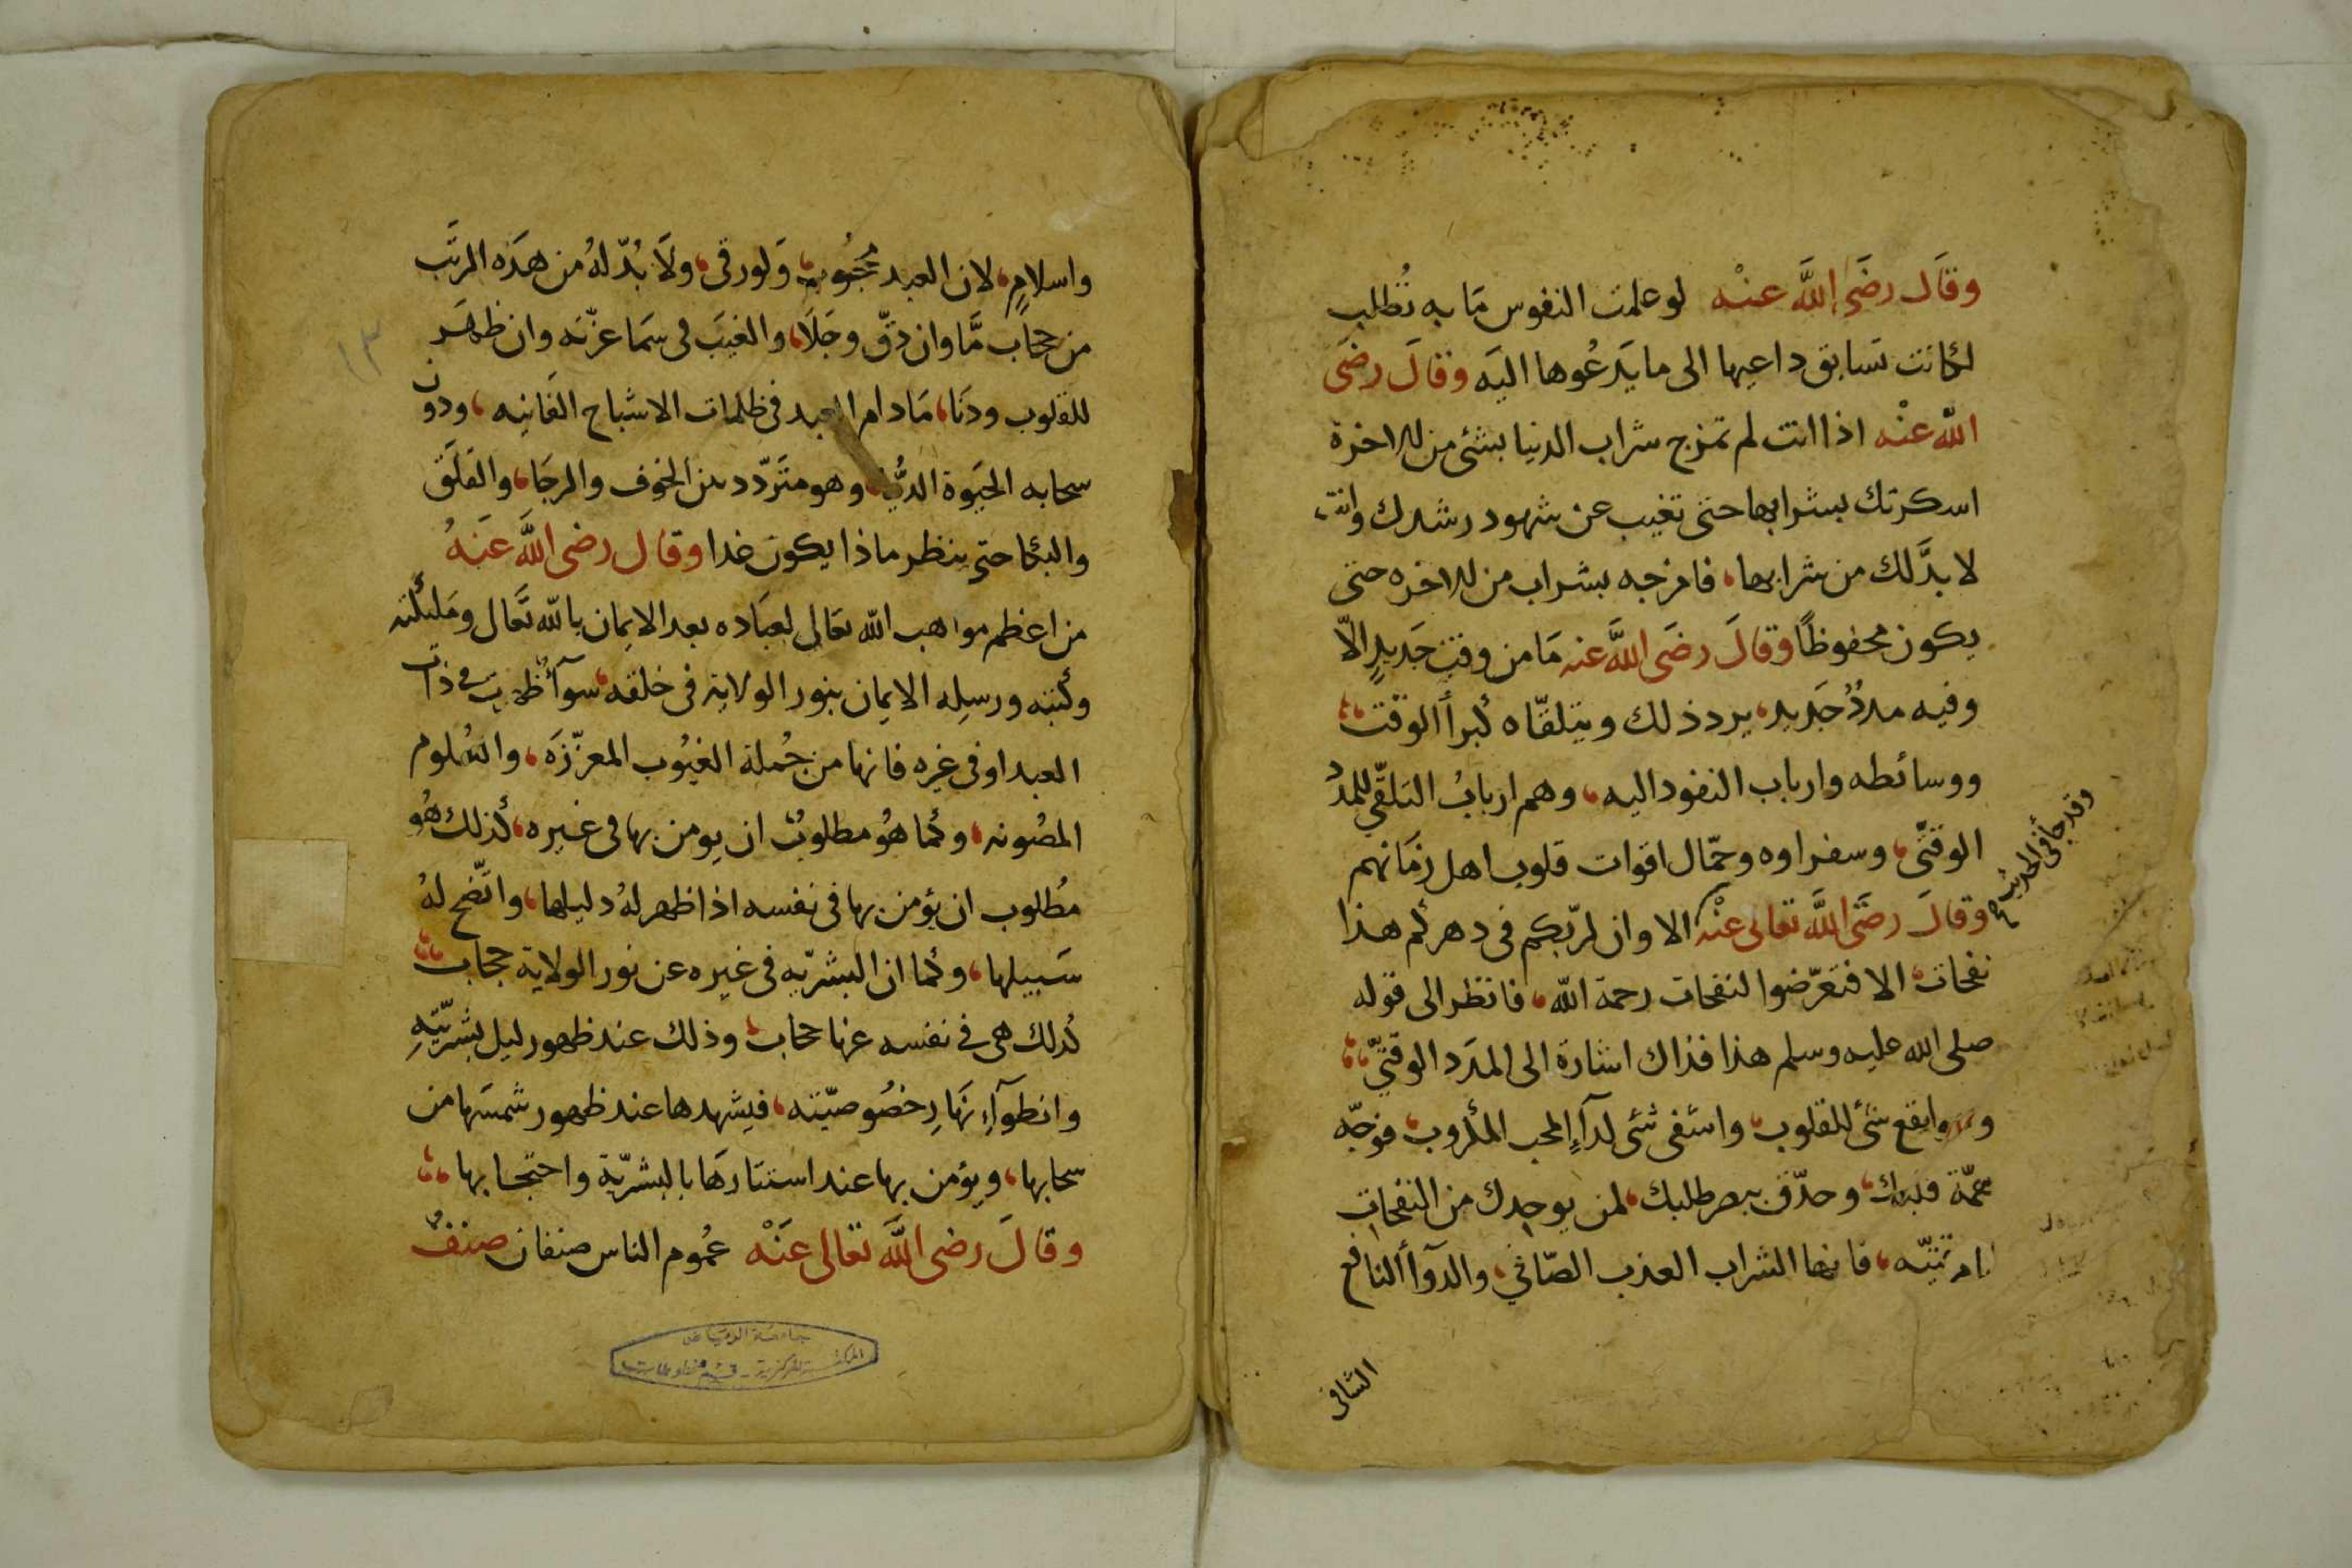 وقال رضي الله عنه لو علمت النفوس ما به تُطلب
لكانت تسابق داعيها الى ما يدعوها اليه وقال رضي
الله عنه اذا انت لم تمزج شراب الدنيا بشئ من الاخرة
اسكرتك بشرابها حتى تغيب عن شهود رشدك وانت
لا بدّ لك من شرابها، فامزجه بشراب من الاخره حتى
يكون محفوظًا وقال رضي الله عنه ما من وقت جديدٍ الّا
وفيه مددُ جديد، يرد ذلك ويتلقّاه كبرأ الوقت
ووسائطه وارباب النفود اليه، وهم اربابُ التلقّي للمدد
الوقتىّ، وسفراوه وحمّال اقوات قلوب اهل زمانهم
وقال رضي الله تعالى عنه الا وان لربّكم في دهركم هذا
وقد جأ في الحديث
نفحات، الا فتعرّضوا لنفحات رحمة الله، فانظر الى قوله
صلى الله عليه وسلم هذا فذاك اشارة الى المدد الوقتىّ
وقع شئ للقلوب، واشفى شئ لدآءِ المحب المكروب، فوجّه
همّة قلبك، وحدّق ببصر طلبك، لمن يوجدك من النفحات
فانها الشراب العذب الصّافي، والدوآأ النافع
الشافى
واسلامٍ، لان العبد محجُوب، ولو رقى، ولا بُدّ لهُ من هذه الرتب
من حجاب مَّا وان دقّ وجلا، والغيب في سما عزّته وان ظهر
١٣
للقلوب ودنا، ما دام العبد في ظلمات الاشباح الفانيه، ودون
سحابه الحيوة الدُّنيا، وهو متردّد بين الخوف والرجا، والقلق
والبكا حتى ينظر ماذا يكون غدا وقال رضى الله عنهُ
من اعظم مواهب الله تعالى لعباده بعد الايمان بالله تعال ومليكته
وكتبه ورسله الايمان بنور الولاية في خلقه، سوآ ظهرت في ذات
العبد او في غيره فانها من جُملة الغيُوب المعزّزه، والعُلوم
المصُونه، وكما هُو مطلوبٌ ان يومن بها في غيره، كذلك هُو
مُطلوب ان يؤمن بها في نفسه اذا ظهر لهُ دليلها، واتّضح لهُ
سبيلها، وكما ان البشريّه في غيره عن نور الولاية حجاب
كذلك هي في نفسه عنها حجاب، وذلك عند ظهور ليل بشريّتهِ
وانطوآءِ نهارِ خصُوصيّته، فيشهدها عند ظهور شمسها من
سحابها، ويؤمن بها عند استتارها بالبشريّة واحتجابها
وقال رضى الله تعالى عنه عُموم الناس صنفان صنفٌ
جامعة الرياض
المكتبة المركزية - قسم مخطوطات